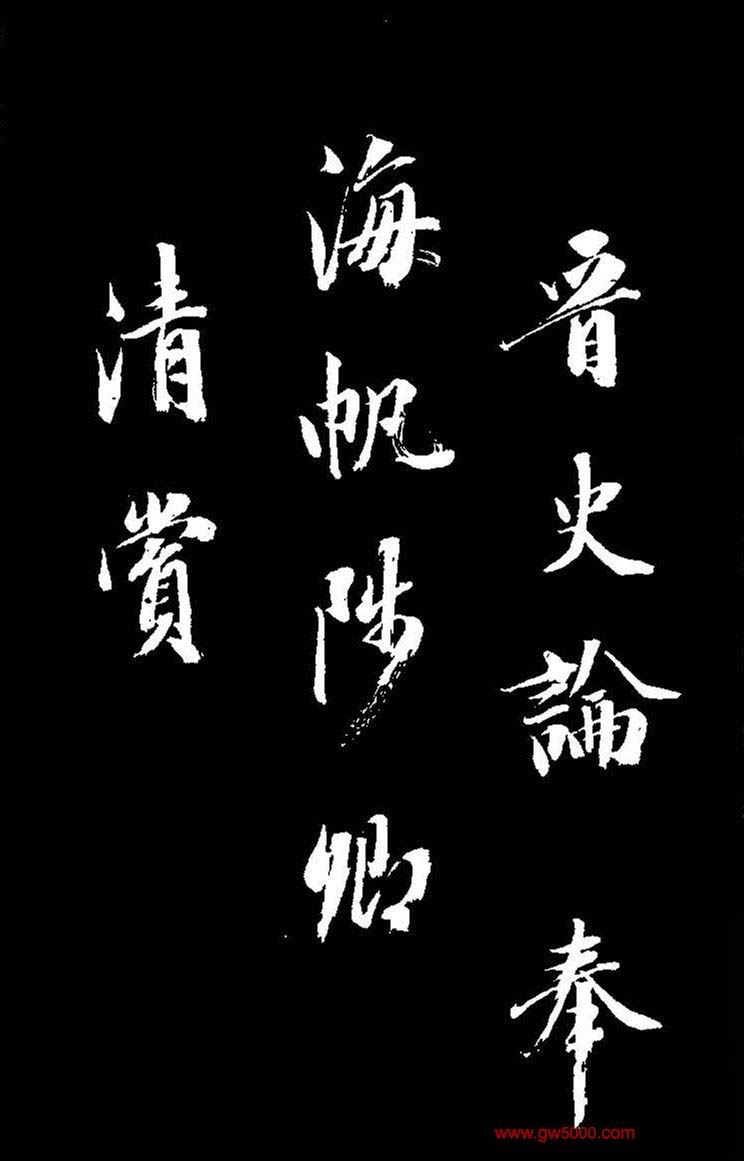 晋史論 奉
海帆陟卿
清賞
www.gw5000.com